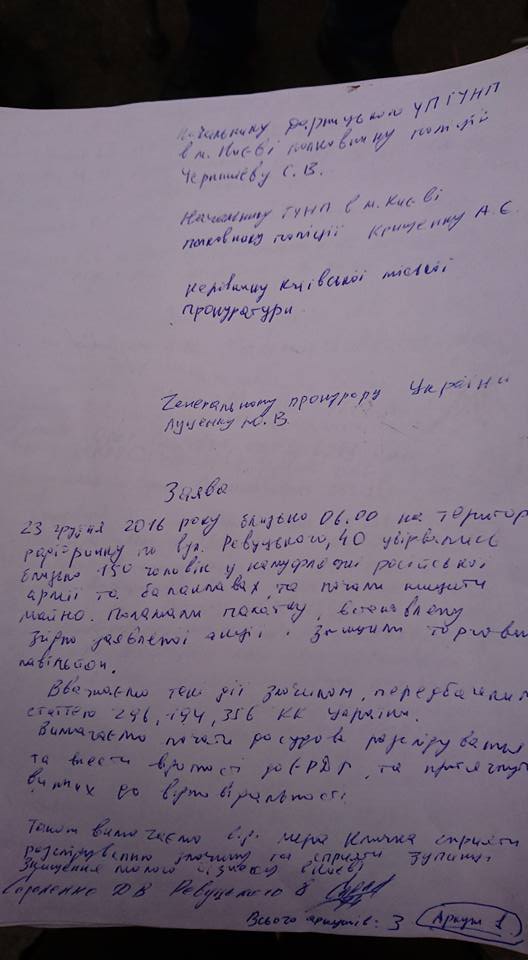 Начальнику Дарницького УП ГУНП
в м. Києві полковнику поліції
Чернишеву С. В.
Начальнику ГУНП в м. Києві
полковнику поліції Крищенку А. Є.
Керівнику Київської міської
прокуратури
Генеральному прокурору України
Луценку Ю. В.
Заява
23 грудня 2016 року близько 06.00 на територ
радіоринку по вул. Ревуцького, 40 увірвались
близько 150 чоловік у камуфляжі російської
армії та балаклавах, та почали нищити
майно. Поламали палатку, встановлену
згідно заявленої акції і знищили торговий
павільйон.
Вважаємо такі дії злочином, передбаченим
статтею 296, 194, 356 КК України.
Вимагаємо почати досудове розслідування
та внести відомості до ЄРДР, та притягнут
винних до відповідальності.
Також вимагаємо в.о. мера Кличка сприяти
розслідуванню злочину та сприяти зупинці
знищення малого бізнесу в Києві
Ревуцького 8
Всього аркушів: 3 Аркуш 1